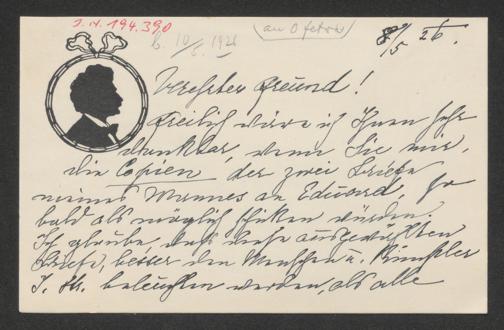 I. N. 194.390
b. 10/6. 1926
(an O fetra)
8/5 26.
Verehrter Freund!
Freilich wäre ich Ihnen sehr
dankbar, wenn Sie mir,
die Copien, der zwei Briefe
meines Mannes an Eduard, so
bald als möglich schiken würden.
Ich glaube, dass diese ausgewählten
Briefe, besser den Menschen u. Künstler
J. Str. beleuchten werden, als alle